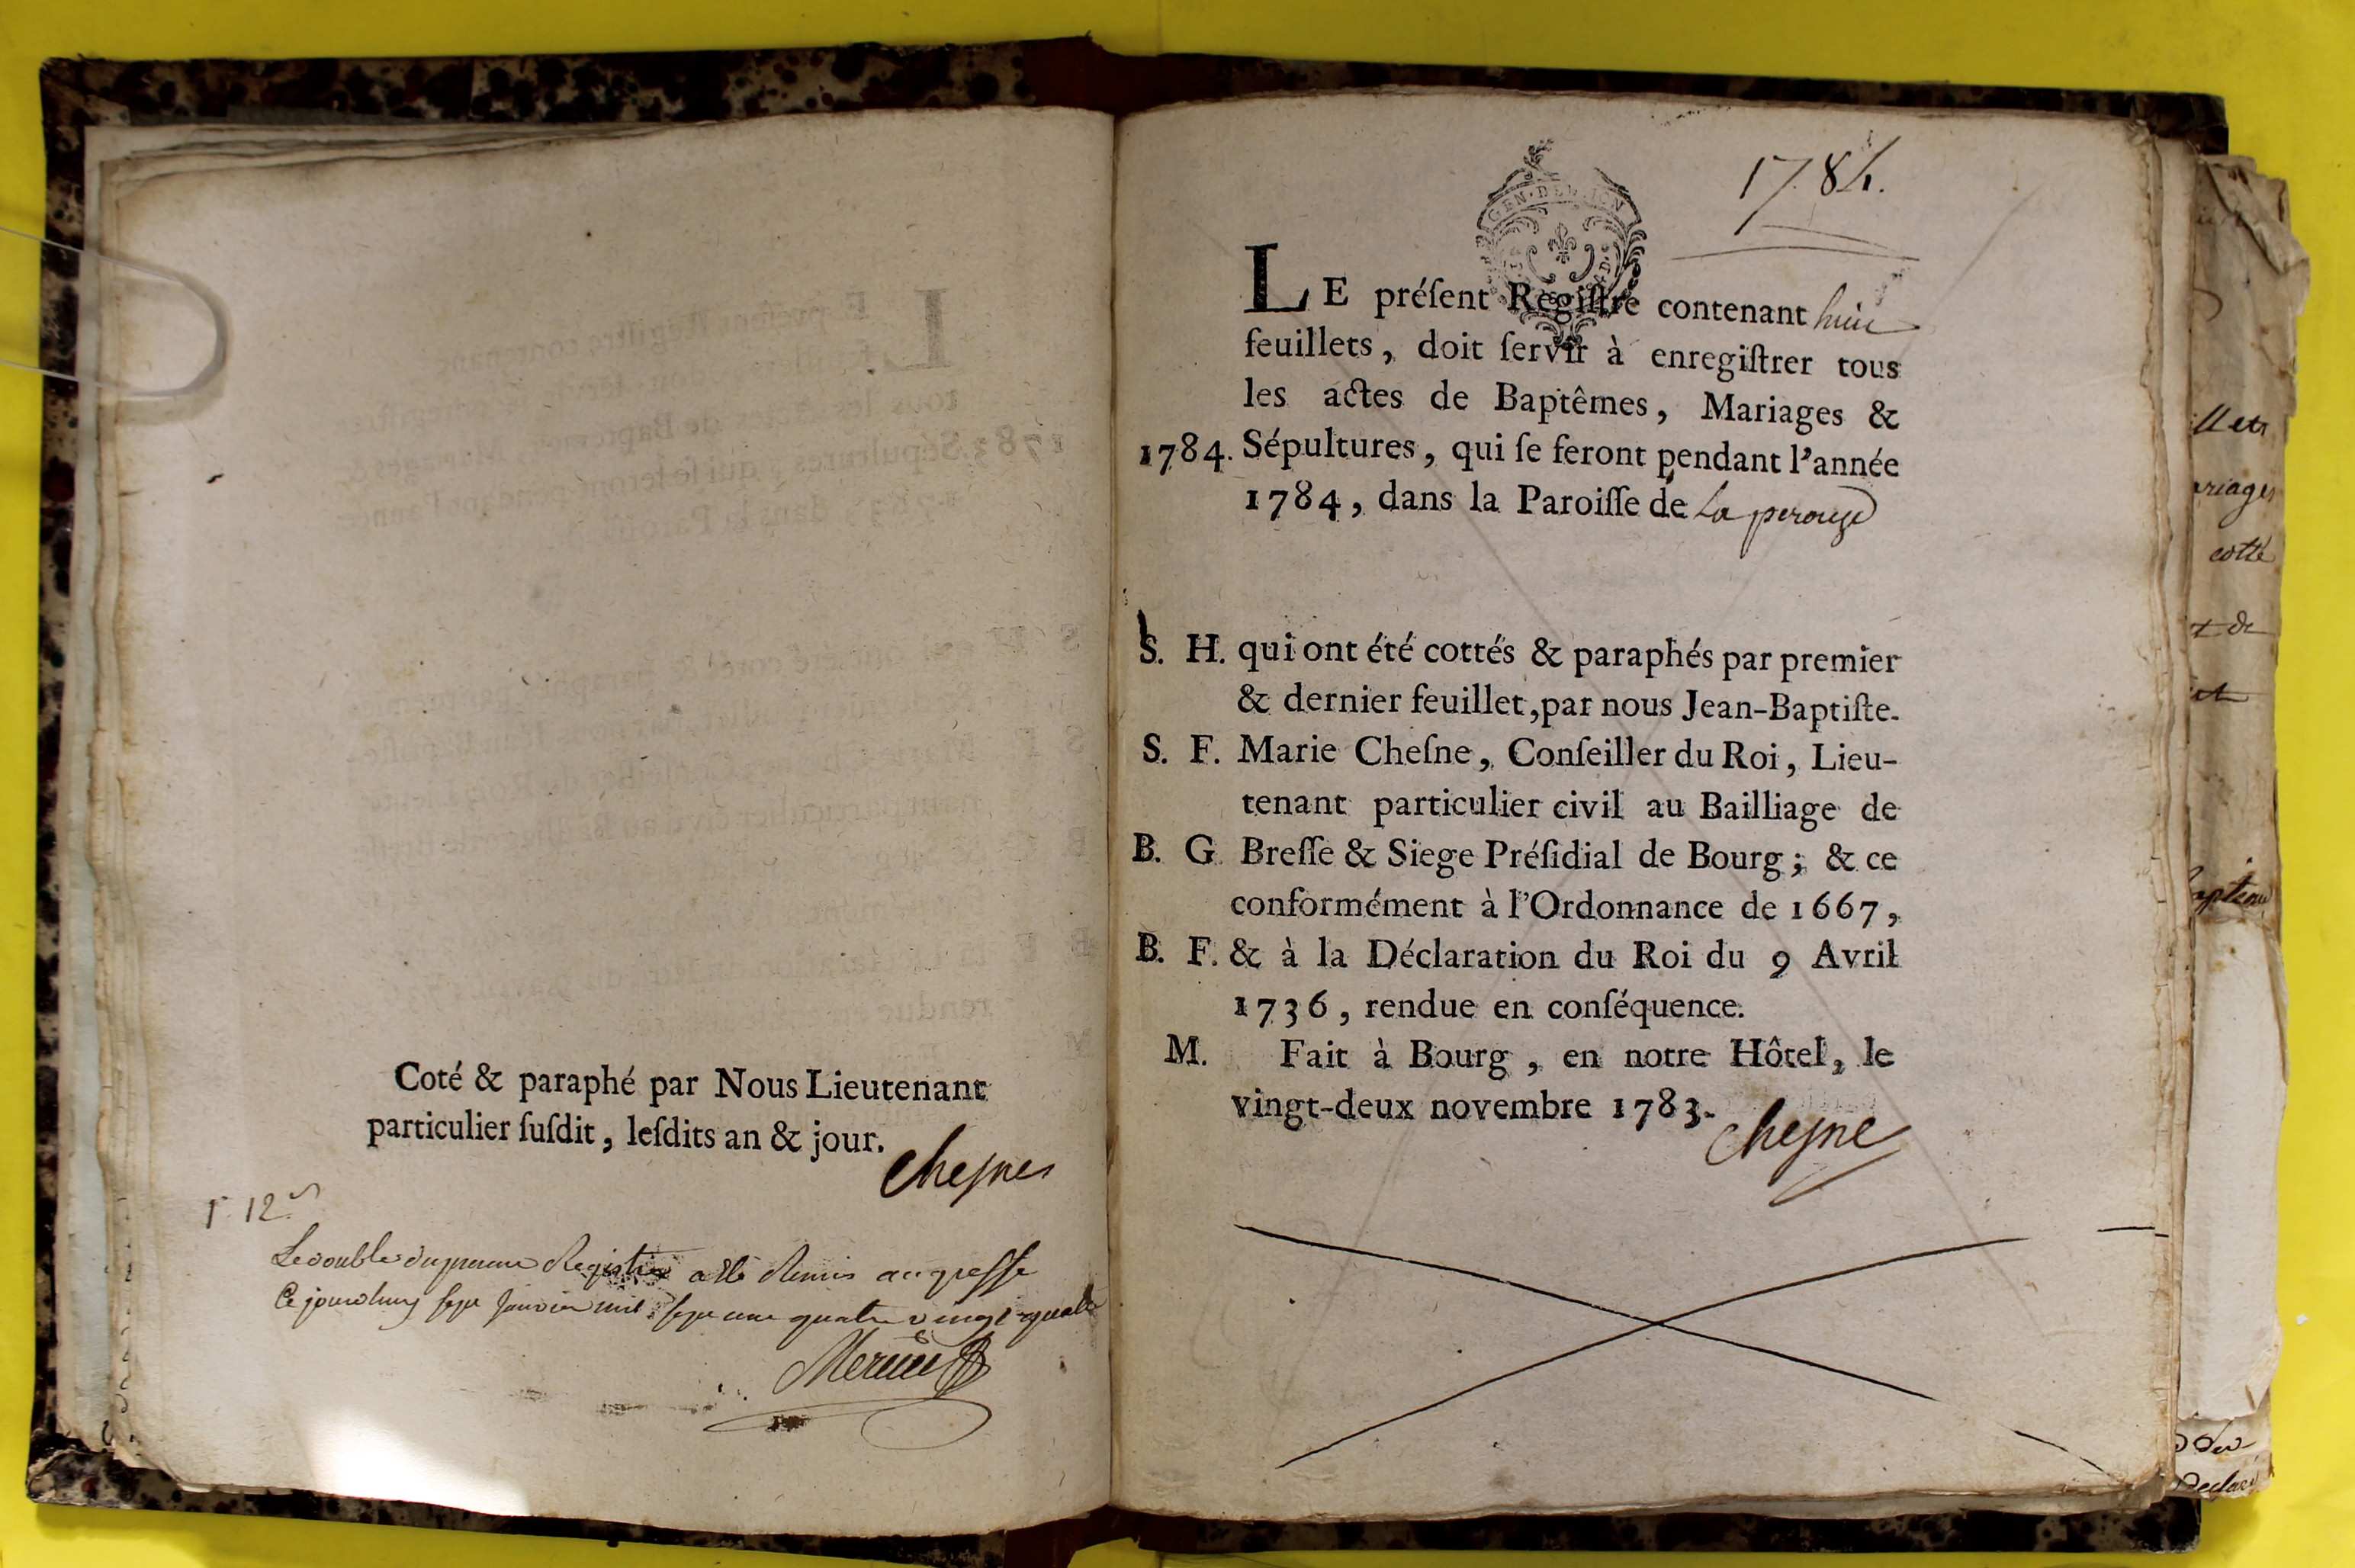 Coté & paraphé par Nous Lieutenant
particulier ſuſdit, leſdits an & jour.
Chesne
12
Le double du present Registre a été Remis au greffe
Ce jourdhuy sept Janvier mil sept cent quatre vingt quatre
1784.
GEN. DE
LE préſent Regiſtre contenant huit
feuillets, doit ſervir à enregiſtrer tous
les actes de Baptêmes, Mariages &
1784. Sépultures, qui ſe feront pendant l'année
1784, dans la Paroiſſe de La perouze
S. H. qui ont été cottés & paraphés par premier
& dernier feuillet, par nous Jean-Baptiſte-
S. F. Marie Cheſne, Conſeiller du Roi, Lieu-
tenant particulier civil au Bailliage de
B. G. Breſſe & Siege Préſidial de Bourg; & ce
conformément à l'Ordonnance de 1667,
B. F. & à la Déclaration du Roi du 9 Avril
1736, rendue en conſéquence.
M. Fait à Bourg, en notre Hôtel, le
vingt-deux novembre 1783.
Chesne